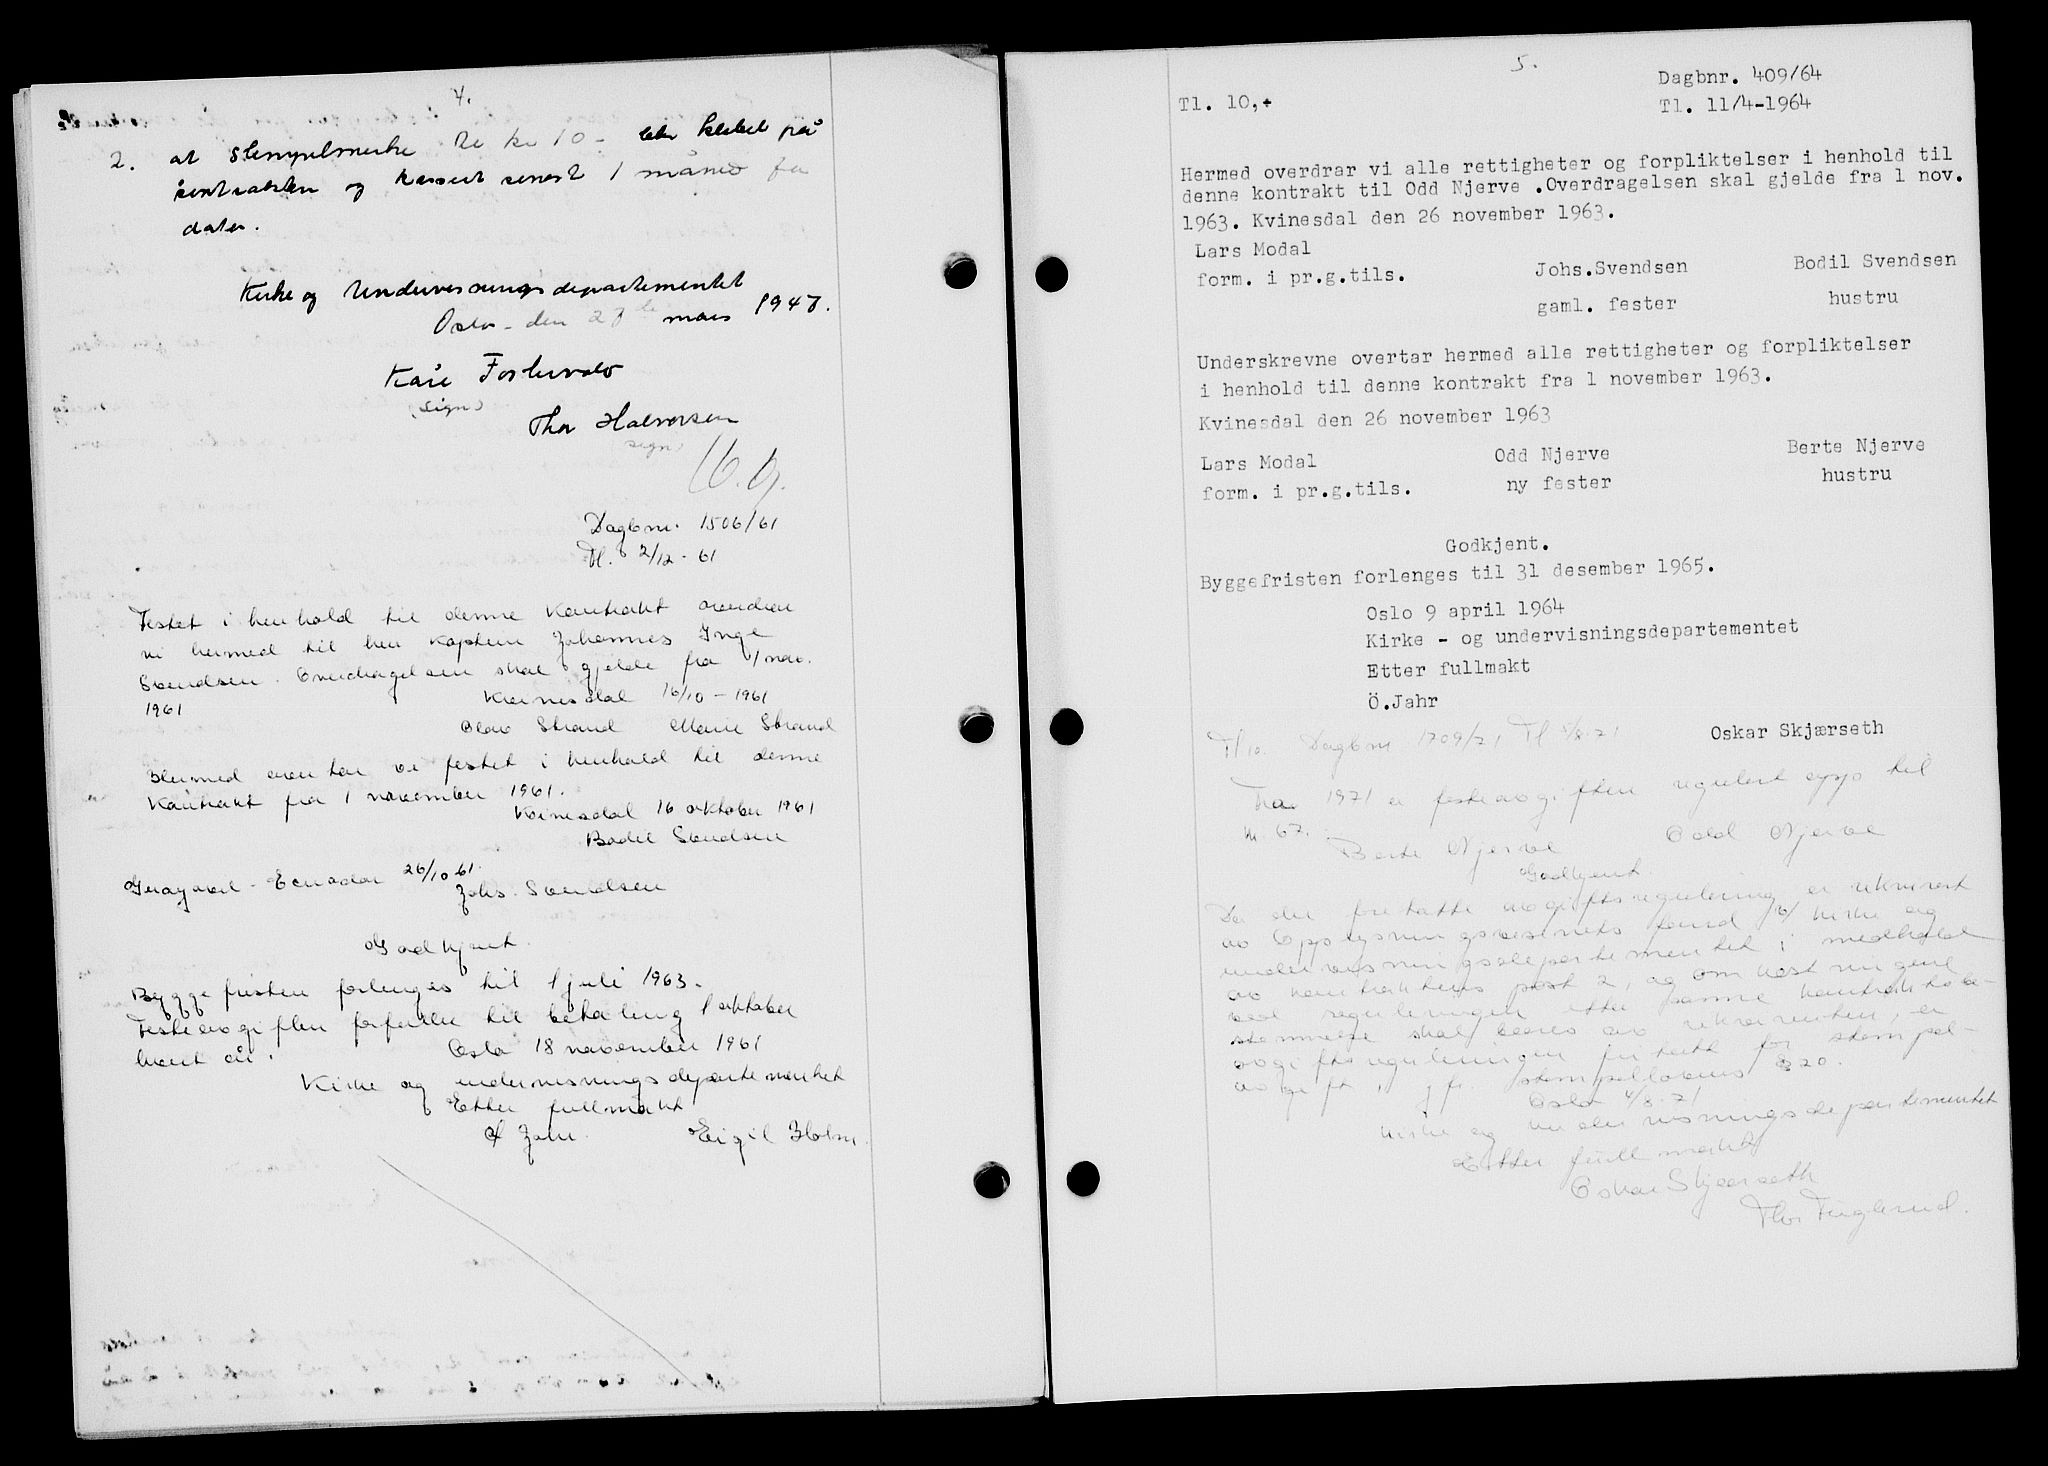 4.
2. at stempelmerke til kr 10.- blir klebet på
kontrakten og kassert senest 1 måned fra
dato.
Kirke og Undervisningsdepartementet
Oslo den 27de mars 1947.
Kåre Fostervoll
(sign)
Thor Halvorsen
sign)
Dagbnr. 1506/61
Tl. 2/12-61
Festet i henhold til denne kontrakt overdrar
vi hermed til herr kaptein Johannes Inge
Svendsen. Overdragelsen skal gjelde fra 1 nov.
1961
Kvinesdal 16/10-1961
Olav Strand Marie Strand
Hermed overtar vi festet i henhold til denne
kontrakt fra 1 november 1961.
Kvinesdal 16 oktober 1961
Bodil Svendsen
Guayaquil - Ecuador 26/10 61.
Johs. Svendsen
Godkjent.
Byggefristen forlenges til 1 juli 1963.
Festeavgiften forfaller til betaling 1 oktober
hvert år.
Oslo 18 november 1961
Kirke og undervisningsdepartementet
Etter fullmakt
Ø Jahr. Eigil Holm.
5.
Dagbnr. 409/64
Tl. 10,+ Tl. 11/4-1964
Hermed overdrar vi alle rettigheter og forpliktelser i henhold til
denne kontrakt til Odd Njerve .Overdragelsen skal gjelde fra 1 nov.
1963. Kvinesdal den 26 november 1963.
Lars Modal
form. i pr.g.tils. Johs.Svendsen Bodil Svendsen
gaml. fester hustru
Underskrevne overtar hermed alle rettigheter og forpliktelser
i henhold til denne kontrakt fra 1 november 1963.
Kvinesdal den 26 november 1963
Lars Modal Odd Njerve Berte Njerve
form. i pr.g.tils. ny fester hustru
Godkjent.
Byggefristen forlenges til 31 desember 1965.
Oslo 9 april 1964
Kirke - og undervisningsdepartementet
Etter fullmakt
Ö.Jahr
Oskar Skjærseth
Tl 10. Dagbnr 1709/71 Tl 5/8-71
Fra 1971 er festeavgiften regulert opp til
kr. 67.
Berte Njerve Odd Njerve
Godkjent.
Da den foretatte avgiftsregulering er rekvirert
av Opplysningsvesenets fond v/ Kirke og
undervisningsdepartementet i medhold
av kontraktens post 2, og omkostningene
ved reguleringen etter samme kontraktsbe-
stemmelse skal bæres av rekvirenten, er
avgiftsreguleringen fritatt for stempel-
avgift, jfr. stempellovens § 20.
Oslo 4/8-71
Kirke og undervisningsdepartementet
Etter fullmakt
Oskar Skjærseth
Thor Fuglerud.